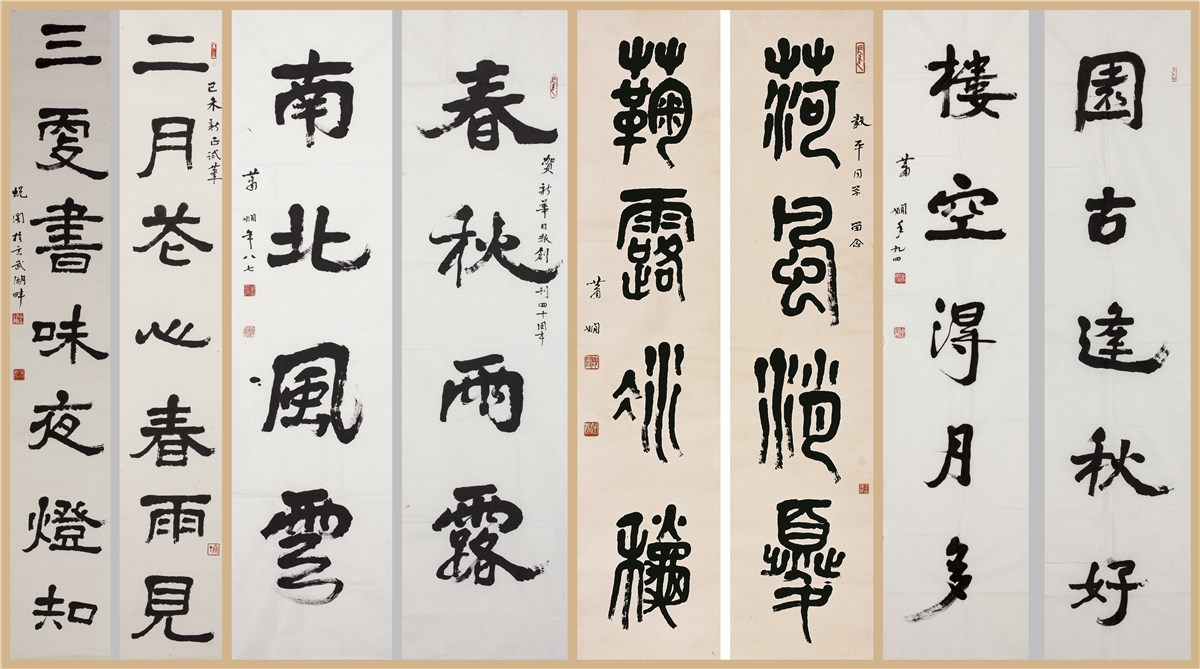 園古逢秋好
樓空得月多
蕭嫻年九四
荷風夏
毅平同学 留念
鞠露龝
蕭嫻
春秋雨露
賀新華日報創刊四十周年
南北風雲
蕭嫻年八七
二月花心春雨見
己未新正試筆
三更書味夜燈知
蜕閣於玄武湖畔